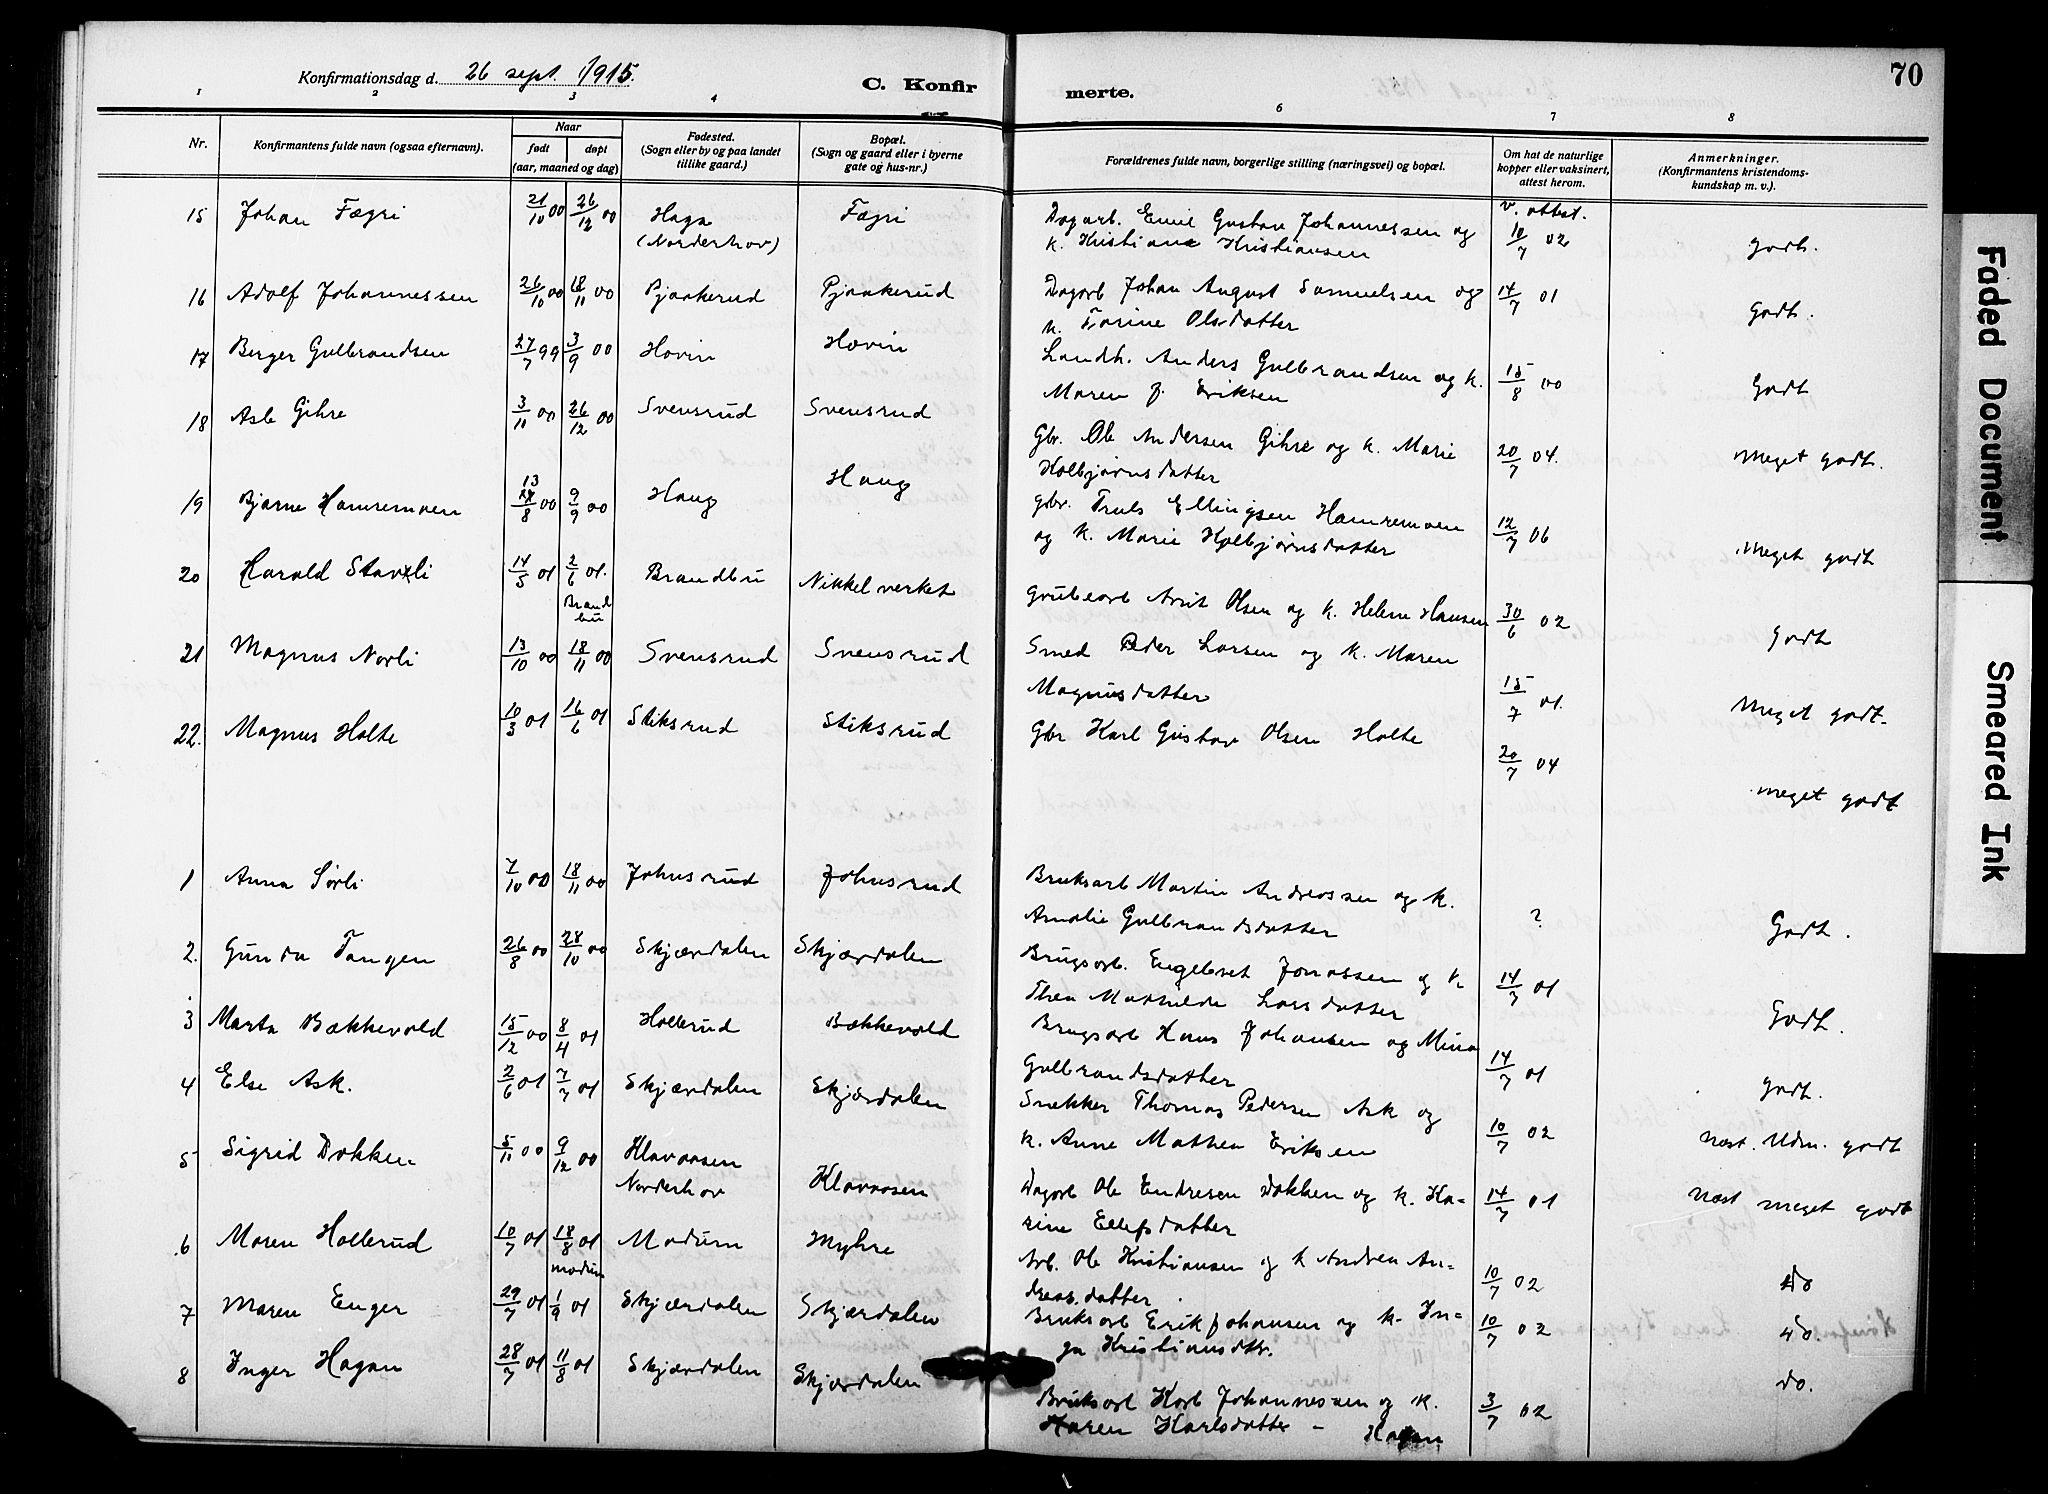 Konfirmationsdag d. 26 sept. 1915.
C. Konfirmerte.
70
1 2 3 4 5 6 7 8
Nr.
Konfirmantens fulde navn (ogsaa efternavn).
Naar
født døpt
(aar, maaned og dag)
Fødested.
(Sogn eller by og paa landet
tillike gaard.)
Bopæl.
(Sogn og gaard eller i byerne
gate og hus-nr.)
Forældrenes fulde navn, borgerlige stilling (næringsvei) og bopæl.
Om hat de naturlige
kopper eller vaksinert,
attest herom.
Anmerkninger.
(Konfirmantens kristendoms-
kundskap m. v.).
15 Johan Fægri 21/10 00 26/12 00 Haga Fægri Dagarb. Emil Gustav Johannessen og v. attest.
(Norderhov) k. Kristiane Kristiansen 10/7 02 godt.
16 Adolf Johannessen 26/10 00 18/11 00 Pjaakerud Pjaakerud Dagarb Johan August Samuelsen og 14/7 01 Godt.
k. Torine Olsdatter
17 Berger Gulbrandsen 27/7 99 3/9 00 Hovin Hovin Landh. Anders Gulbrandsen og k. 15/8 00 Godt
Maren f. Eriksen
18 Asle Gihre 3/11 00 26/12 00 Svensrud Svensrud Gbr. Ole Andersen Gihre og k. Marie 20/7 04. Meget godt.
Kolbjørnsdatter
19 Bjarne Hamremoen 13/8 00 9/9 00 Haug Haug gbr. Truls Ellingsen Hamremoen 12/7 06 Meget godt
og k. Marie Kolbjørnsdatter
20 Harald Stavli 14/5 01 2/6 01. Brandbu Nikkelverket Grubearb Olsen og k. Helene Hansen 30/6 02 Godt
Brand
bu
21 Magnus Norli 13/10 00 18/11 00 Svensrud Svensrud Smed Peder Larsen og k. Maren
Magnusdatter 15/7 01. Meget godt.
22. Magnus Holte 10/3 01 16/6 01 Stiksrud Stiksrud Gbr Karl Gustav Olsen Holte 20/7 04 meget godt
1 Anna Sørli 7/10 00 18/11 00 Johnsrud Johnsrud Bruksarb Martin Andreassen og k.
Amalie Gulbrandsdatter ? Godt.
2. Gunda Tangen 26/8 00 28/10 00 Skjærdalen Skjærdalen Brugsarb. Engebret Jonassen og k.
Thea Mathilde Larsdatter 14/7 01 Godt.
3 Marta Bækkevold 15/12 00 8/4 01 Hollerud Bækkevold Brugsarb Hans Johansen og Mina
Gulbrandsdatter 14/7 01 godt.
4 Else Ask. 2/6 01 7/7 01 Skjærdalen Skjærdalen Snekker Thomas Pedersen Ask og
k. Anne Mathea Eriksen 10/7 02 næst. Udm. godt
5 Sigrid Dokken 5/11 00 9/12 00 Klavaasen Klavaasen Dagarb Ole Endresen Dokken og k. Ka-
Norderhov rine Ellefsdatter 14/7 01 næst meget godt
6 Maren Hollerud 10/7 01 18/8 01 Modum Myhre Arb. Ole Kristiansen og k Andrea An-
modum dreas.datter. 10/7 02 do
7 Maren Enger 29/7 01 1/9 01 Skjærdalen Skjærdalen Bruksarb Erik Johansen og k. In-
ga Kristiansdtr. 10/7 02 do.
8 Inger Hagan 28/7 01 11/8 01 Skjærdalen Skjærdalen Bruksarb Karl Johannessen og k.
Karen Karlsdatter - Hagan 3/7 02 do.
Faded Document
Smeared Ink